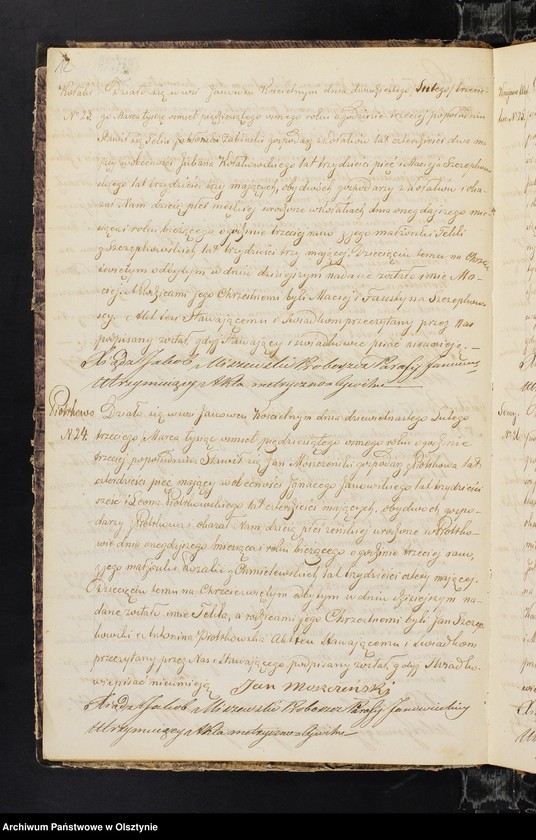 12
Kołaki Działo się we wsi Janowcu Kościelnym dnia dwudziestego Lutego trzecie-
No 23. go Marca tysiąc ośmset pięćdziesiątego ósmego roku o godzinie trzeciej popołudniu
Stawił się Felix gospodarz z Kołaków lat czterdzieści dwa ma-
jący w obecności Juliana lat trzydzieści pięć i Macieja Szczepkow-
skiego lat trzydzieści trzy mających, obydwóch gospodarzy z Kołaków i oka-
zał Nam dziecię płci męskiej urodzone w Kołakach, dnia onegdajszego mie-
siąca i roku bieżącego o godzinie trzeciej rano z jego małżonki Tekli
z Szczepkowskich lat trzydzieści trzy mającej. Dziecięciu temu na Chrzcie
świętym odbytym w dniu dzisiejszym nadane zostało imie Ma-
ciej. A Rodzicami jego Chrzestnemi byli Maciej i Faustyna Szczepkow-
scy. Akt ten Stawającemu i Świadkom przeczytany, przez Nas
podpisany został, gdyż Stawający i świadkowie pisać nieumieją. —
Xiądz Jakob Miszewski Proboszcz Parafii Janowiec
Utrzymujący Akta metryczno Cywilne
Piotrkowo Działo się we wsi Janowcu Kościelnym dnia dziewiętnastego Lutego
No 24. trzeciego Marca tysiąc ośmset pięćdziesiątego ósmego roku o godzinie
trzeciej popołudniu. Stawił się Jan Moszczeński gospodarz z Piotrkowa lat
czterdzieści pięć mający w obecności Ignacego Janowskiego lat trzydzieści
sześć i Leona Piotrkowskiego lat czterdzieści mających, obydwóch gospo-
darzy z Piotrkowa i okazał Nam dziecię płci żeńskiej urodzone w Piotrko-
wie dnia onegdajszego miesiąca i roku bieżącego o godzinie trzeciej rano,
z jego małżonki Rozalii z Chmielewskich lat trzydzieści cztery mającej.
Dziecięciu temu na Chrzcie świętym odbytym w dniu dzisiejszym na-
dane zostało imie Tekla, a rodzicami jego Chrzestnemi byli Jan Szczep-
kowski i Antonina Piotrkowska. Akt ten Stawającemu i świadkom
przeczytany przez Nas i Stawającego podpisany został, gdyż Świadko-
wie pisać nieumieją Jan Moszczeński
Xiądz Jakob Miszewski Proboszcz Parafii Janowieckiej
Utrzymujący Akta metryczno Cywilne
No 25.
No 26.
Archiwum Państwowe w Olsztynie